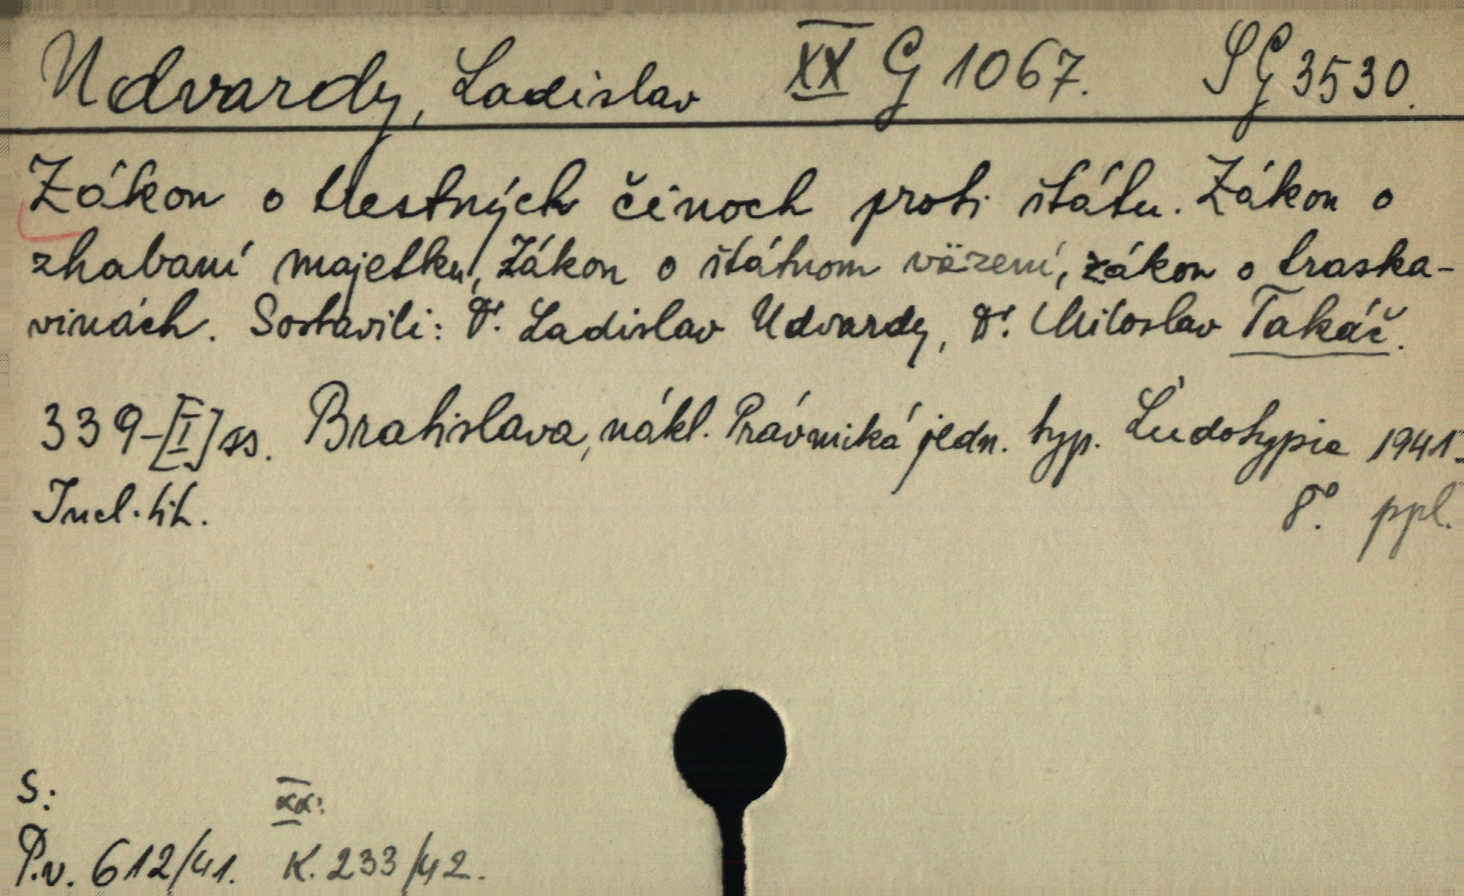 Udvardy, Ladislav XX G 1067. SG 3530.
Zákon o trestných činoch proti štátu. Zákon o
zhabaní majetku, Zákon o štátnom väzení, zákon o traska-
vinách. Sostavili: Dr. Ladislav Udvardy, Dr. Miloslav Takáč.
339-[I] ss. Bratislava, nákl. Právnická jedn. typ. Ľudotypia 1941.
Incl. tit. 8°. ppl.
S: XX:
P.v. 612/41. K. 233/42.